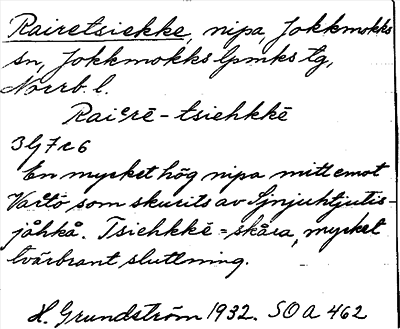 Rairetsiekke, nipa, Jokkmokks
sn, Jokkmokks lpmks tg,
Norrb. l.
Raiᵉrē-tsiehkkē
3lj7c6
En mycket hög nipa mitt emot
Vartō som skurits av Sjnjuhtjutis-
jåhkå. Tsiehkkē = skåra, mycket
tvärbrant sluttning.
H. Grundström 1932. SOA 462